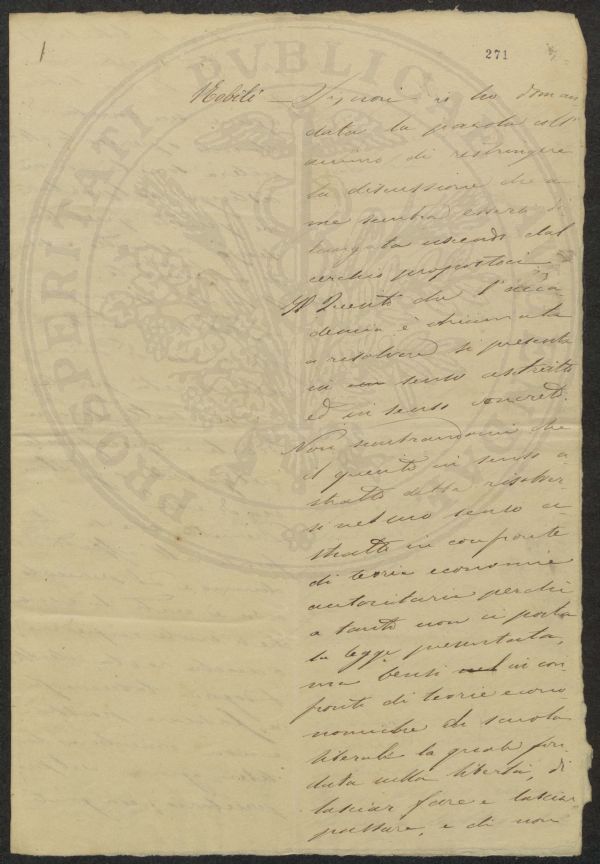 271
Nobili — Signori io ho doman
data la parola coll'
animo di restringere
la discussione che a
me sembra essersi di
lungata uscendo dal
cerchio propostoci
Il Quesito che l'acca
demia è chiamata
a risolvere si presenta
in un senso astratto
ed in senso concreto.
Non sembrandomi che
il quesito in senso a
stratto debba risolver
si nel suo senso a
stratto in confronto
di teorie economie
autoritarie perchè
a tanto non ci porta
la legge presentata,
ma bensì nel in con
fronto di teorie econo
nomiche di scuola
liberale la quale fon
data sulla libertà, di
lasciar fare e lasciar
passare, e di non
PROSPERITATI PVBLICAE